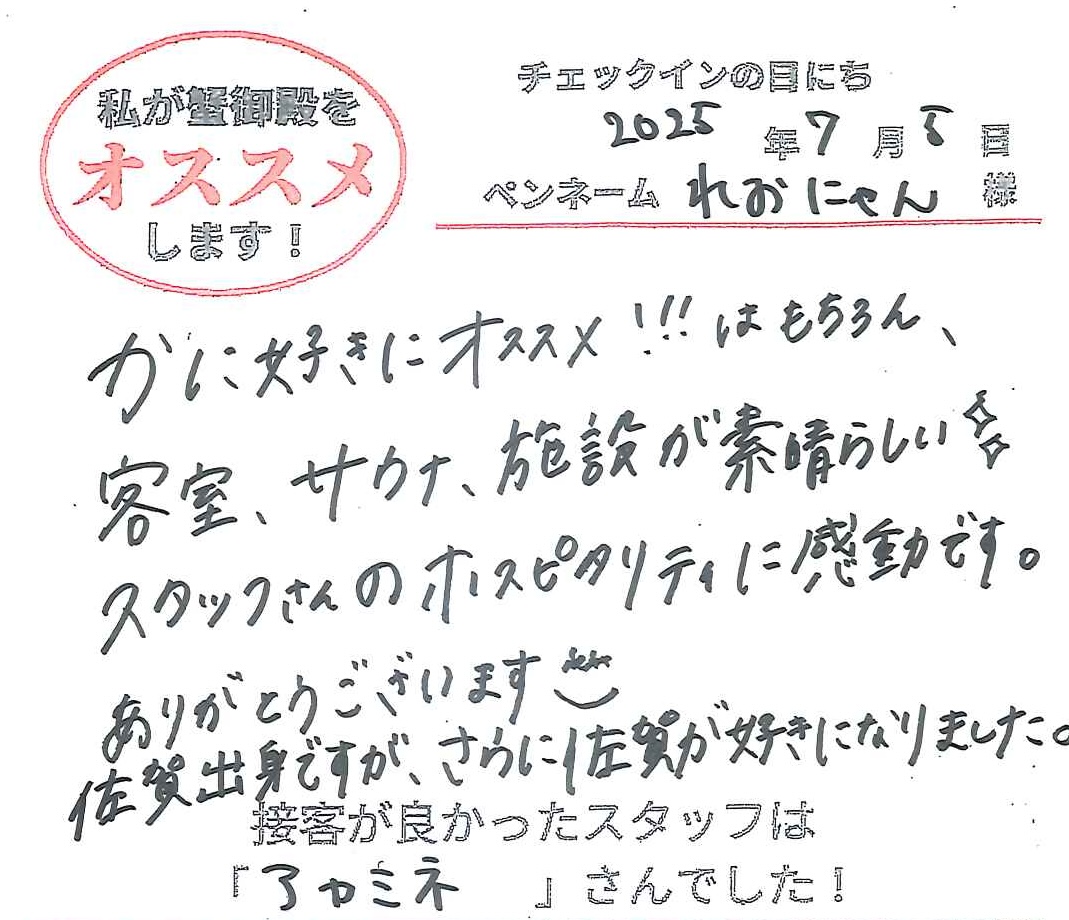 私が蟹御殿を
オススメ
します！
チェックインの日にち
2025年7月5日
ペンネーム れおにゃん 様
かに好きにオススメ!!!はもちろん、
客室、サウナ、施設が素晴らしい
スタッフさんのホスピタリティに感動です。
ありがとうございます
佐賀出身ですが、さらに佐賀が好きになりました。
接客が良かったスタッフは
「アカミネ」さんでした！